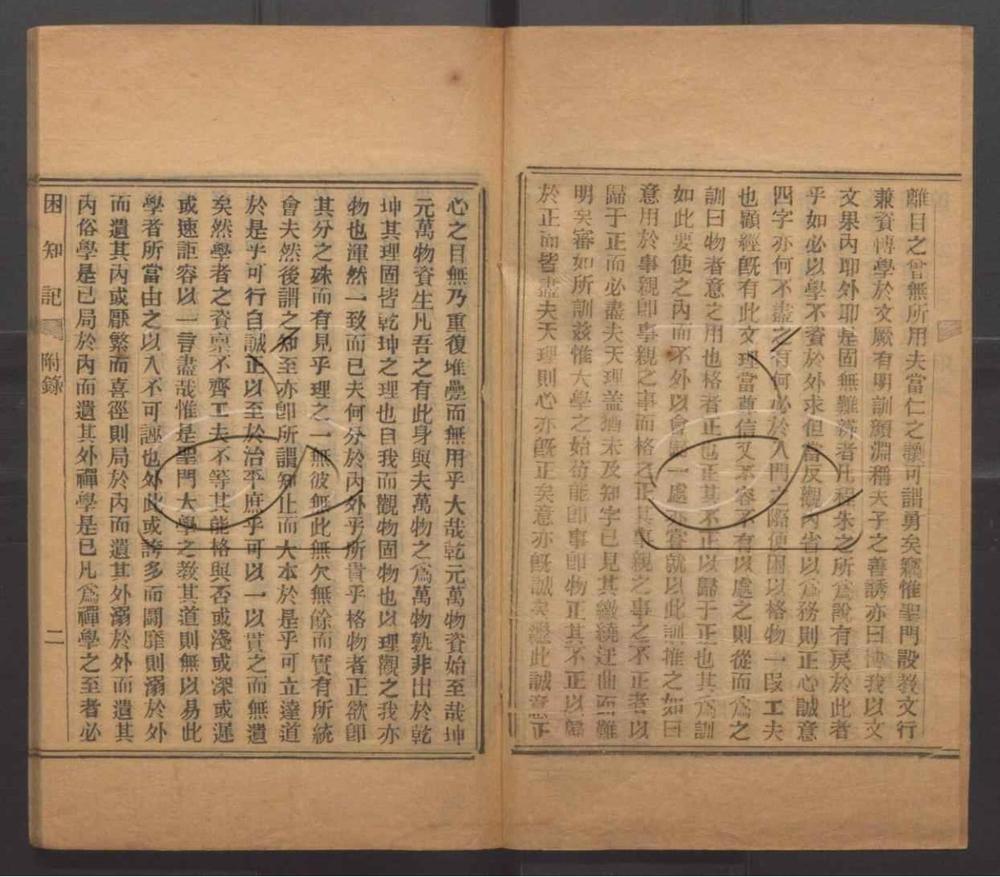 離目之曾無所用夫當仁之讓可謂勇矣竊惟聖門設教文行
兼資博學於文厥有明訓顏淵稱夫子之善誘亦曰博我以文
文果內耶外耶是固無難辨者凡程朱之所為說有戾於此者
乎如必以學不資於外求但當反觀內省以為務則正心誠意
四字亦何不盡之有何必於入門之際便困以格物一段工夫
也顧經既有此文理當尊信又不容不有以處之則從而為之
訓曰物者意之用也格者正也正其不正以歸于正也其為訓
如此要使之內而不外以會歸一處亦嘗就以此訓推之如曰
意用於事親即事親之事而格之正其事親之事之不正者以
歸于正而必盡夫天理蓋猶未及知字已見其繳繞迂曲而難
明矣審如所訓茲惟大學之始苟能即事即物正其不正以歸
於正而皆盡夫天理則心亦既正矣意亦既誠矣繼此誠意正
心之目無乃重復堆疊而無用乎大哉乾元萬物資始至哉坤
元萬物資生凡吾之有此身與夫萬物之為萬物孰非出於乾
坤其理固皆乾坤之理也自我而觀物固物也以理觀之我亦
物也渾然一致而已夫何分於內外乎所貴乎格物者正欲即
其分之殊而有見乎理之一無彼無此無欠無餘而實有所統
會夫然後謂之知至亦即所謂知止而大本於是乎可立達道
於是乎可行自誠正以至於治平庶乎可以一以貫之而無遺
矣然學者之資稟不齊工夫不等其能格與否或淺或深或遲
或速詎容以一言盡哉惟是聖門大學之教其道則無以易此
學者所當由之以入不可誣也外此或誇多而鬬靡則溺於外
而遺其內或厭繁而喜徑則局於內而遺其外溺於外而遺其
內俗學是已局於內而遺其外禪學是已凡為禪學之至者必
困知記 附錄 二